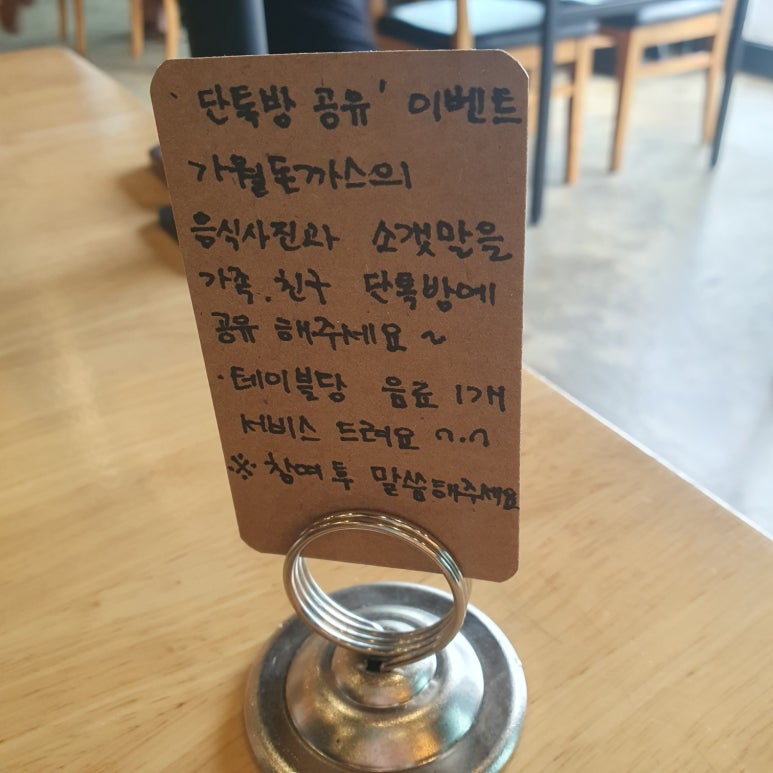 '단톡방 공유' 이벤트
가월돈까스의
음식사진과 소갯말을
가족.친구 단톡방에
공유 해주세요~
·테이블당 음료 1개
서비스 드려요 ^.^
※ 참여후 말씀해주세요